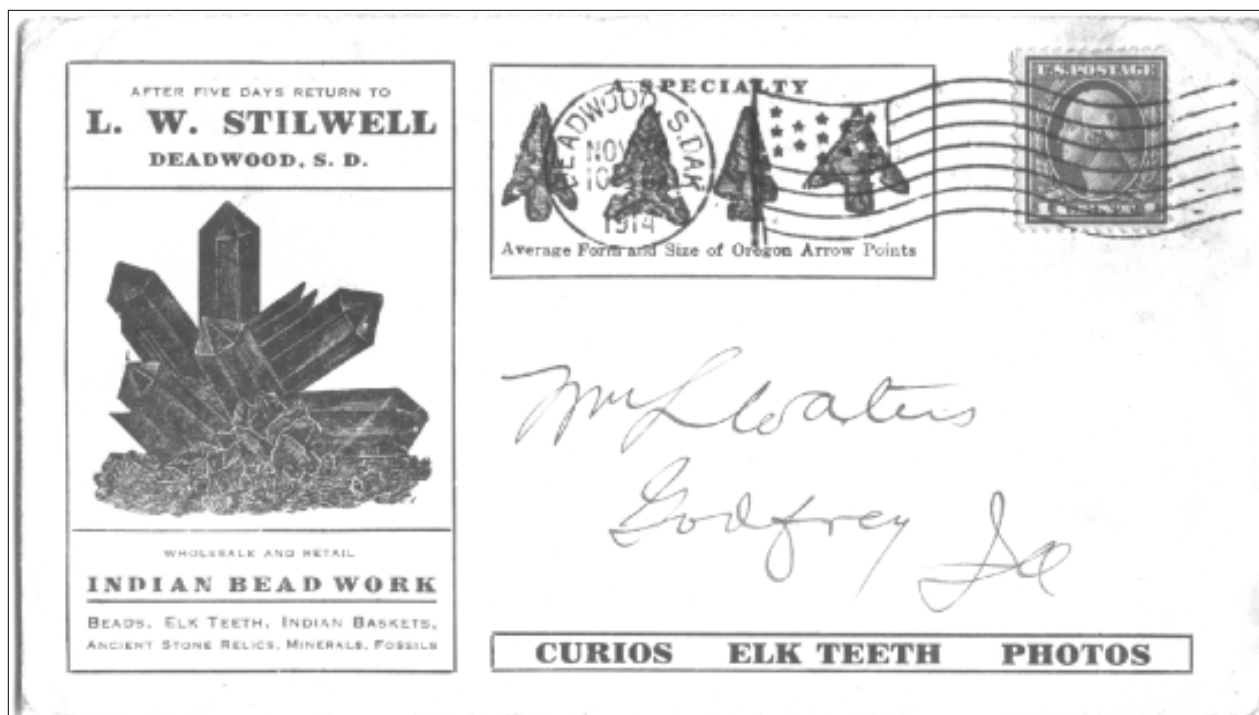 AFTER FIVE DAYS RETURN TO
L. W. STILWELL
DEADWOOD, S. D.
WHOLESALE AND RETAIL
INDIAN BEAD WORK
BEADS, ELK TEETH, INDIAN BASKETS,
ANCIENT STONE RELICS, MINERALS, FOSSILS
A SPECIALTY
DEADWOOD S.DAK
NOV
10
1914
Average Form and Size of Oregon Arrow Points
U.S. POSTAGE
Wm L Waters
Godfrey Ill
CURIOS ELK TEETH PHOTOS